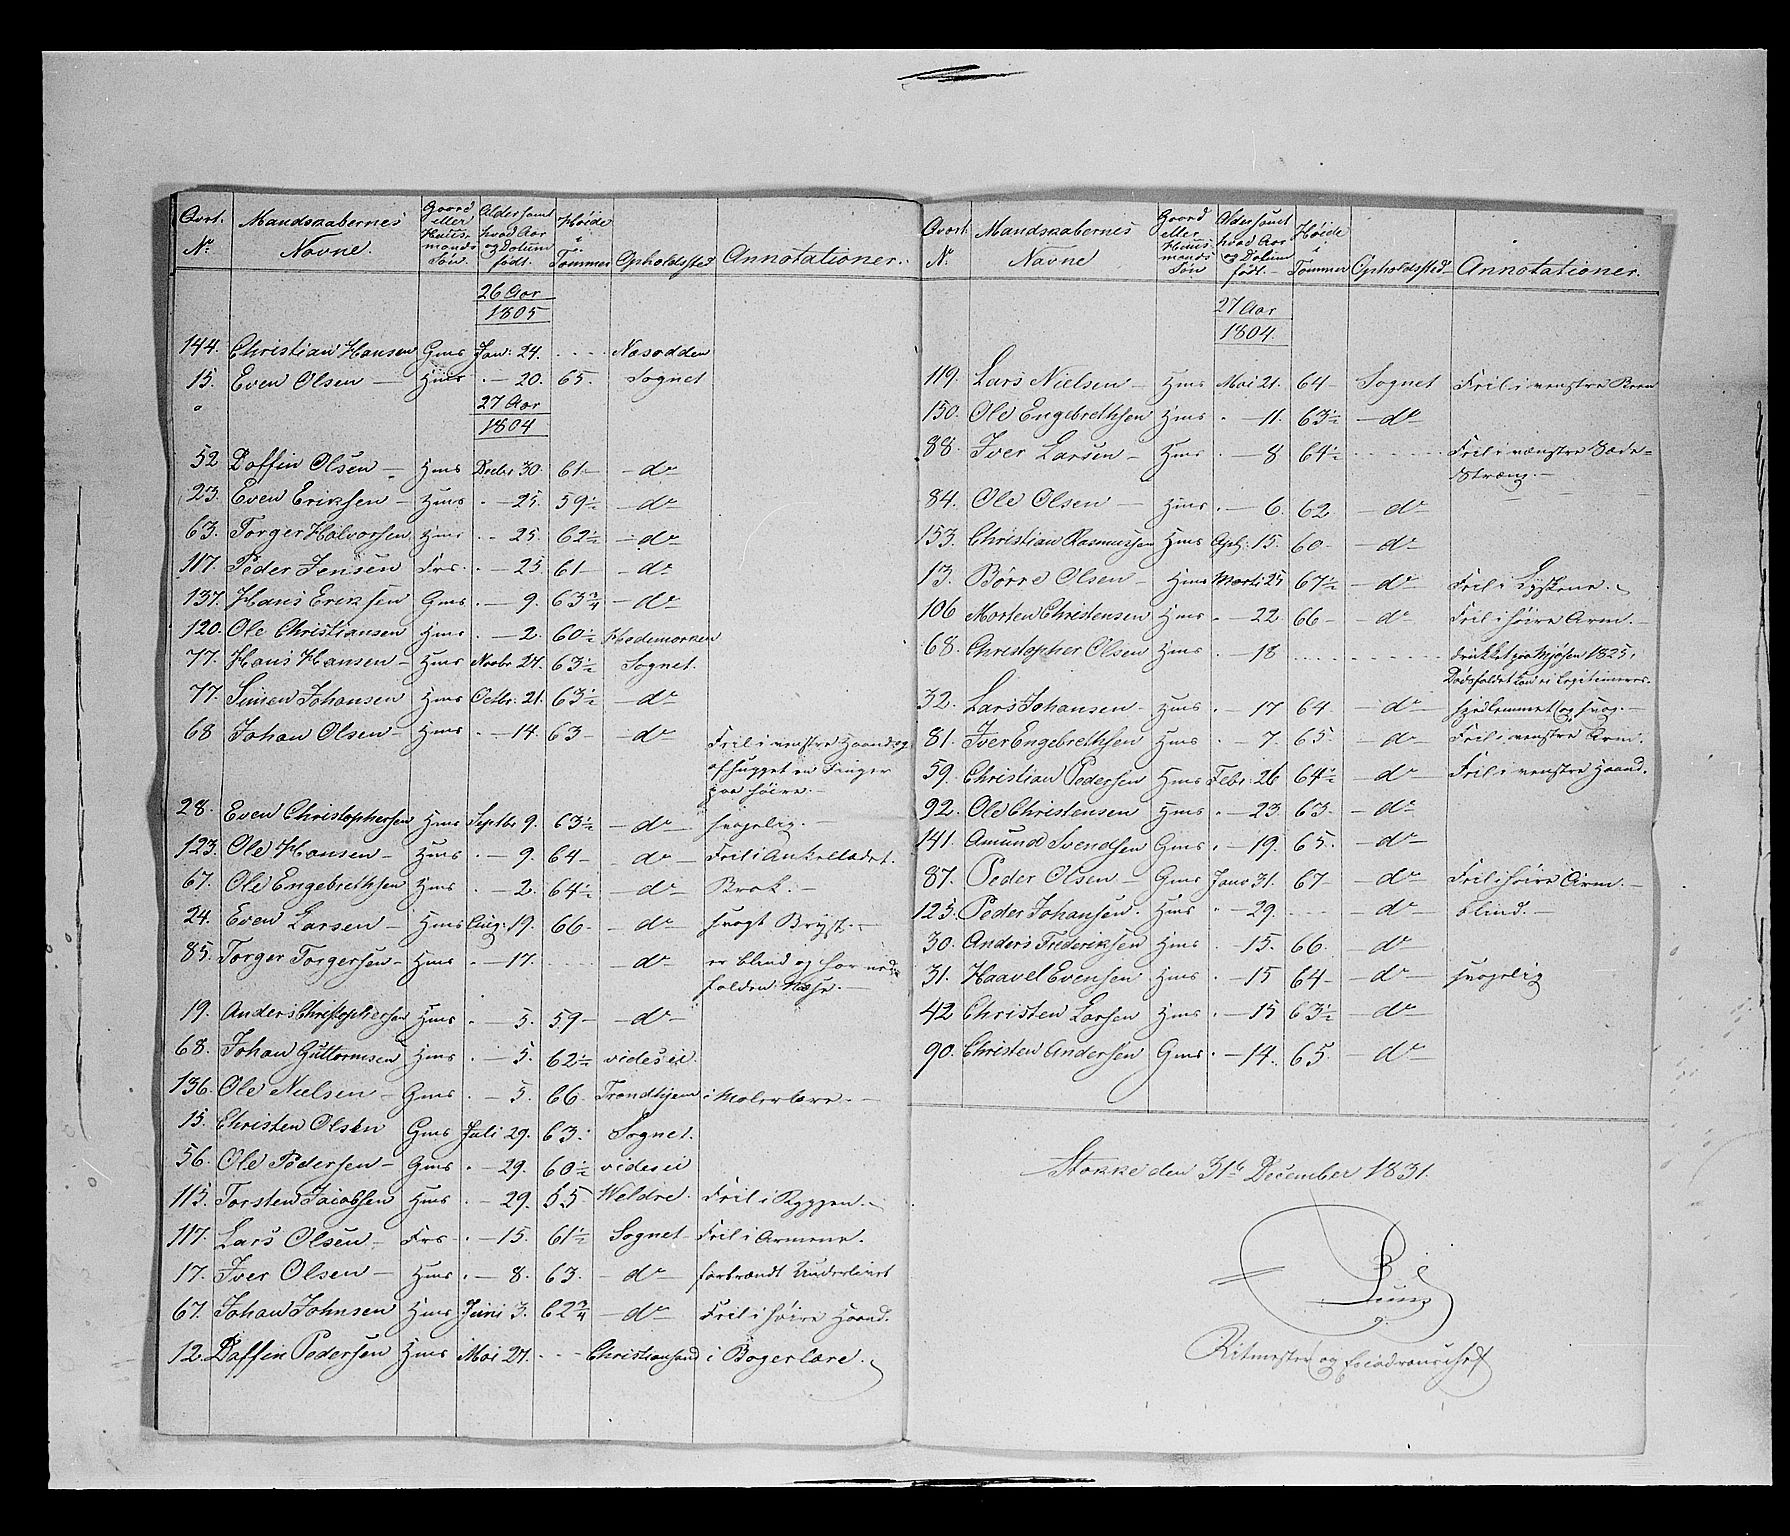 Qvart. Nr. Mandskabernes Navne. Gaard eller Huusmands Søn. Alder samt hvad Aar og Datum født. Høide i Tommer Opholdssted Annotationer.
26 Aar
1805
144. Christian Hansen Gms Jan: 24. Næsodden
15. Even Olsen — Hms — 20. 65. Sognet
27 Aar
1804
52 Doffin Olsen — Hms Decbr 30. 61 — do
23. Even Eriksen — Hms — 25. 59½ — do
63. Torger Halvorsen Hms — 25. 62½ — do
117. Peder Jensen Frs. — 25. 61 — do
137. Hans Eriksen Gms — 9. 63¾ — do
120. Ole Christiansen Hms — 2. 60½ Hedemarken
77. Hans Hansen — Hms Novbr 24. 63½ Sognet
77. Simen Johansen Hms Octbr. 21. 63½ — do
68 Johan Olsen — Hms — 14. 63 — do Feil i venstre Haand og
afhugget en Finger
paa høire. —
28. Even Christophersen Hms Septbr 9. 63½ — do svagelig. —
123. Ole Hansen — Hms — 9. 64 — do Feil i Ankelledet.
67. Ole Engebrethsen Hms — 2. 64½ — do Brok. —
24. Even Larsen — Hms Aug: 19. 66 — do svagt Bryst. —
85. Torger Torgersen — Hms — 17. — do er blind og har ned
falden Næse. —
19. Anders Christophersen Hms — 5. 59 — do
68. Johan Guttormsen Hms — 5. 62½ vides ei.
136. Ole Nielsen — Gms — 5. 66. Trondhjem i Malerlære. —
15. Christen Olsen Gms Juli 29. 63. Sognet.
56. Ole Pedersen — Gms — 29. 60½ vides ei
115. Torsten Jacobsen Hms — 29. 55 Weldre. Feil i Ryggen. —
117. Lars Olsen — Frs — 15. 61½ Sognet Feil i Armene.
17. Iver Olsen — Hms — 8. 63. — do forbrændt Underlivet
67. Johan Johnsen Hms Juni 3. 62¾ — do Feil i høire Haand.
12. Doffin Pedersen Hms Mai 27. Christiansand i Bagerlære.
Qvart. N. Mandskabernes Navne Gaard eller Huusmands Søn Alder samt hvad Aar og Datum født. Høide i Tommer Opholdssted Annotationer.
27 Aar
1804
119. Lars Nielsen — Hms Mai 21. 64 — Sognet Feil i venstre Been
150. Ole Engebrethsen Hms — 11. 63½ — do
88. Iver Larsen — Hms — 8 64½ Feil i venstre Sæde-
Stræng. —
84. Ole Olsen — Hms — 6. 62 — do
153. Christian Rasmussen Hms Apl: 15. 60 — do
13. Børre Olsen — Hms Marts 25 67½ — do Feil i Lysken.
106 Morten Christensen Hms — 22 66 — do Feil i høire Arm. —
68. Christopher Olsen Hms — 18 druknet paa Mjøsen 1825,
Dødsfaldet kan ei legitimeres.
32. Lars Johansen — Hms — 17 64 — do og svag. —
81. Iver Engebrethsen Hms — 7. 65 — do Feil i venstre Arm.
59. Christian Pedersen Hms Febr. 26 64½ — do Feil i venstre Haand.
92. Ole Christensen Hms — 23. 63. — do
141. Amund Svendsen Gms — 19. 65. — do
87. Peder Olsen — Gms Janv 31. 67 — do Feil i høire Arm. —
125. Peder Johansen. Hms — 29. — do blind. —
30. Anders Frederiksen Hms — 15. 66. — do
31. Haavel Evensen Hms — 15 64 — do svagelig
42 Christen Larsen Hms — 15 63½ — do
90. Christen Andersen Gms — 14. 65. do
Stokke den 31te December 1831.
Ritmester og Escadronschef